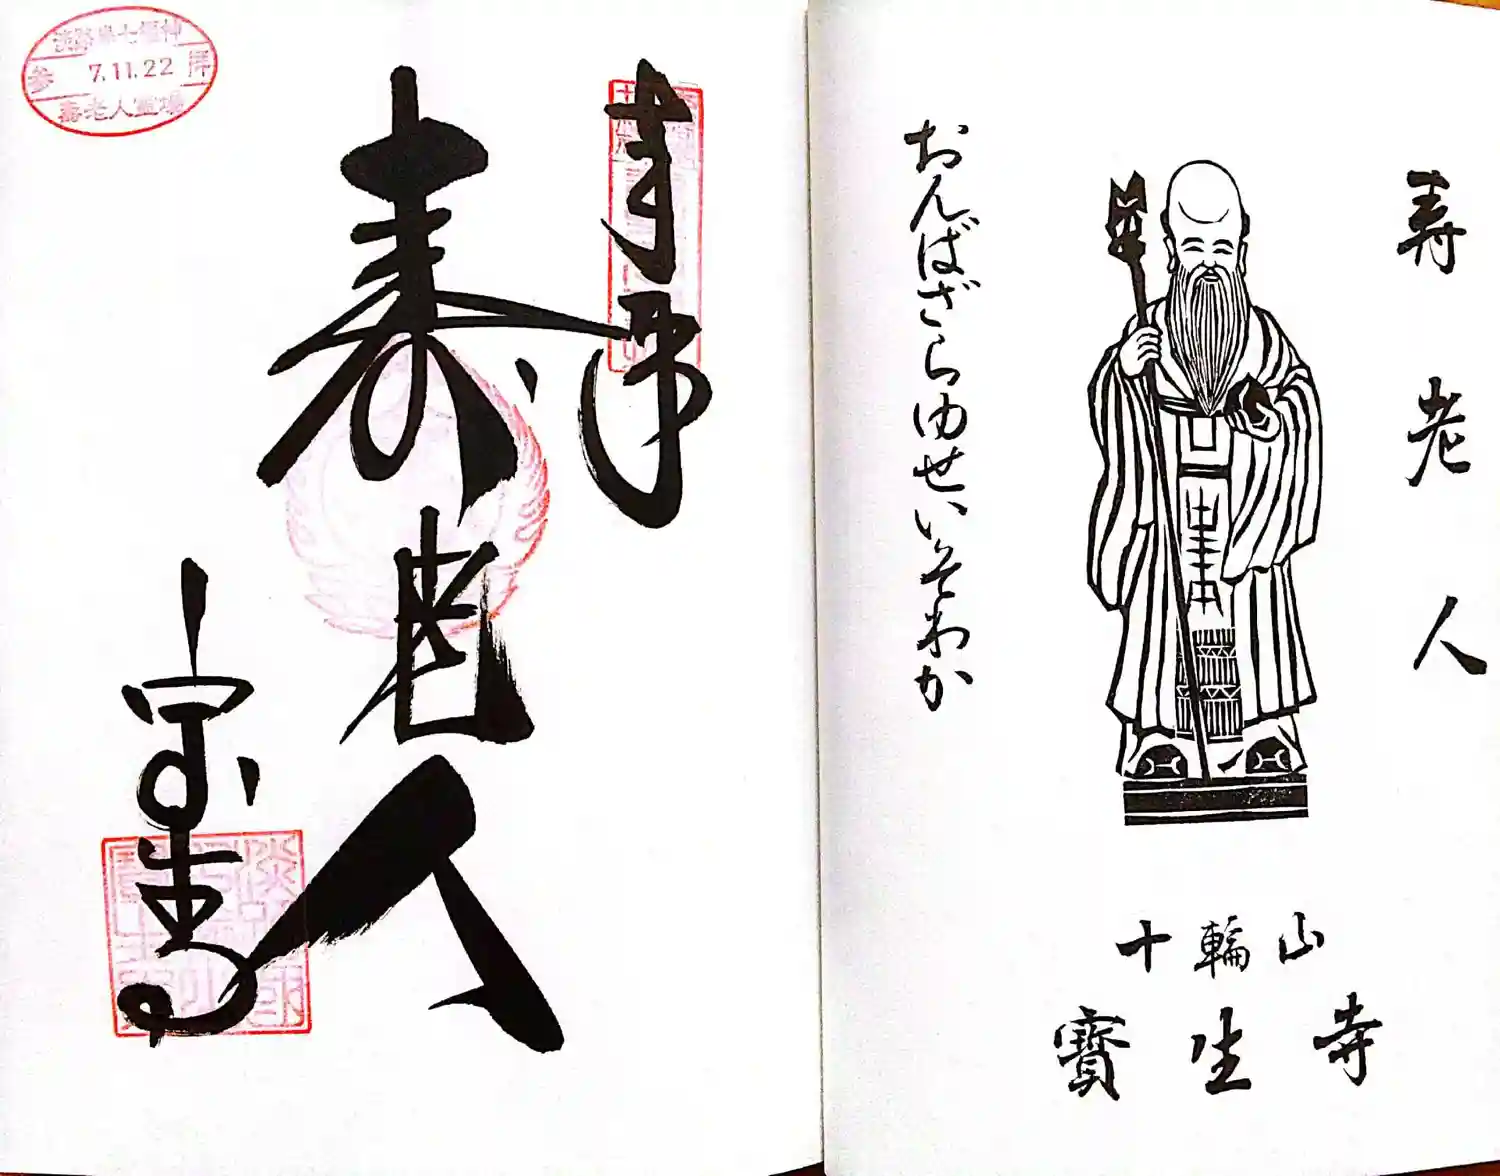 寿老人
おんばざらゆせいそわか
十輪山
寳生寺
奉拝
寿老人
宝生寺
淡路島七福神
参拝
7.11.22
寿老人霊場